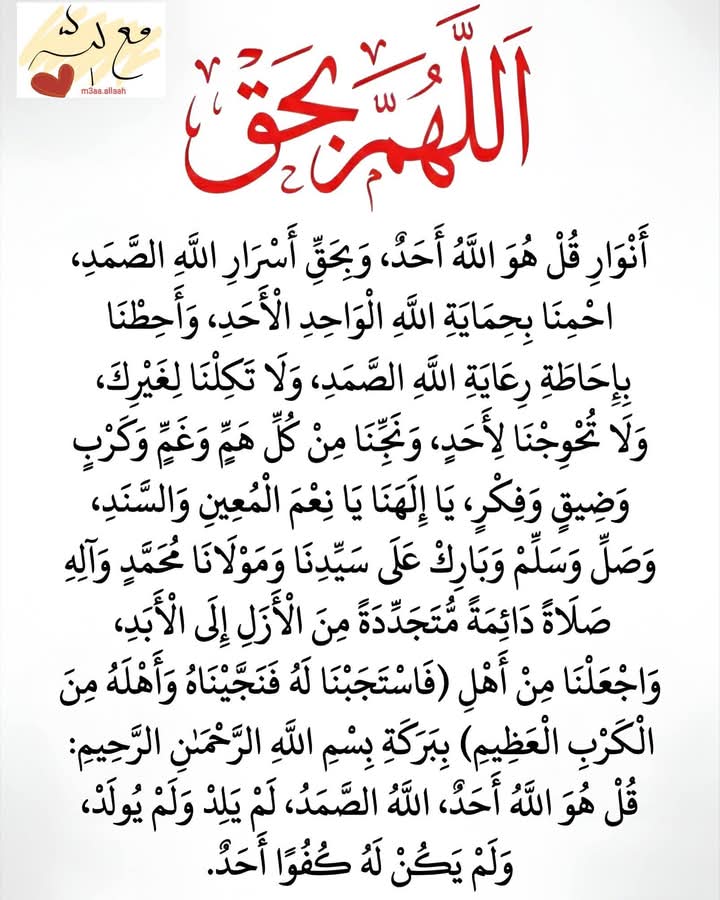 مع الله
m3aa.allaah
اَللَّهُمَّ بِحَقِّ
أَنْوَارِ قُلْ هُوَ اللَّهُ أَحَدٌ، وَبِحَقِّ أَسْرَارِ اللَّهِ الصَّمَدِ،
احْمِنَا بِحِمَايَةِ اللَّهِ الْوَاحِدِ الْأَحَدِ، وَأَحِطْنَا
بِإِحَاطَةِ رِعَايَةِ اللَّهِ الصَّمَدِ، وَلَا تَكِلْنَا لِغَيْرِكَ،
وَلَا تُحْوِجْنَا لِأَحَدٍ، وَنَجِّنَا مِنْ كُلِّ هَمٍّ وَغَمٍّ وَكَرْبٍ
وَضِيقٍ وَفِكْرٍ، يَا إِلَهَنَا يَا نِعْمَ الْمُعِينِ وَالسَّنَدِ،
وَصَلِّ وَسَلِّمْ وَبَارِكْ عَلَى سَيِّدِنَا وَمَوْلَانَا مُحَمَّدٍ وَآلِهِ
صَلَاةً دَائِمَةً مُّتَجَدِّدَةً مِنَ الْأَزَلِ إِلَى الْأَبَدِ،
وَاجْعَلْنَا مِنْ أَهْلِ (فَاسْتَجَبْنَا لَهُ فَنَجَّيْنَاهُ وَأَهْلَهُ مِنَ
الْكَرْبِ الْعَظِيمِ) بِبَرَكَةِ بِسْمِ اللَّهِ الرَّحْمَٰنِ الرَّحِيمِ:
قُلْ هُوَ اللَّهُ أَحَدٌ، اللَّهُ الصَّمَدُ، لَمْ يَلِدْ وَلَمْ يُولَدْ،
وَلَمْ يَكُنْ لَهُ كُفُوًا أَحَدٌ.